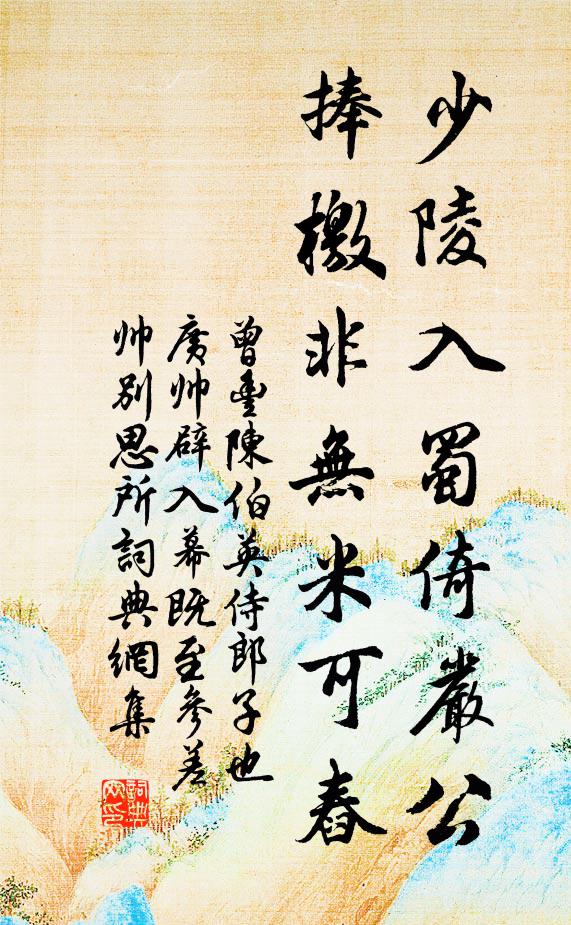 少陵入蜀倚嚴公
捧檄非無米可舂
曾豐陳伯英侍郎子也
廣帥辟入幕既至參差
帅别思所詞典網集
詞典